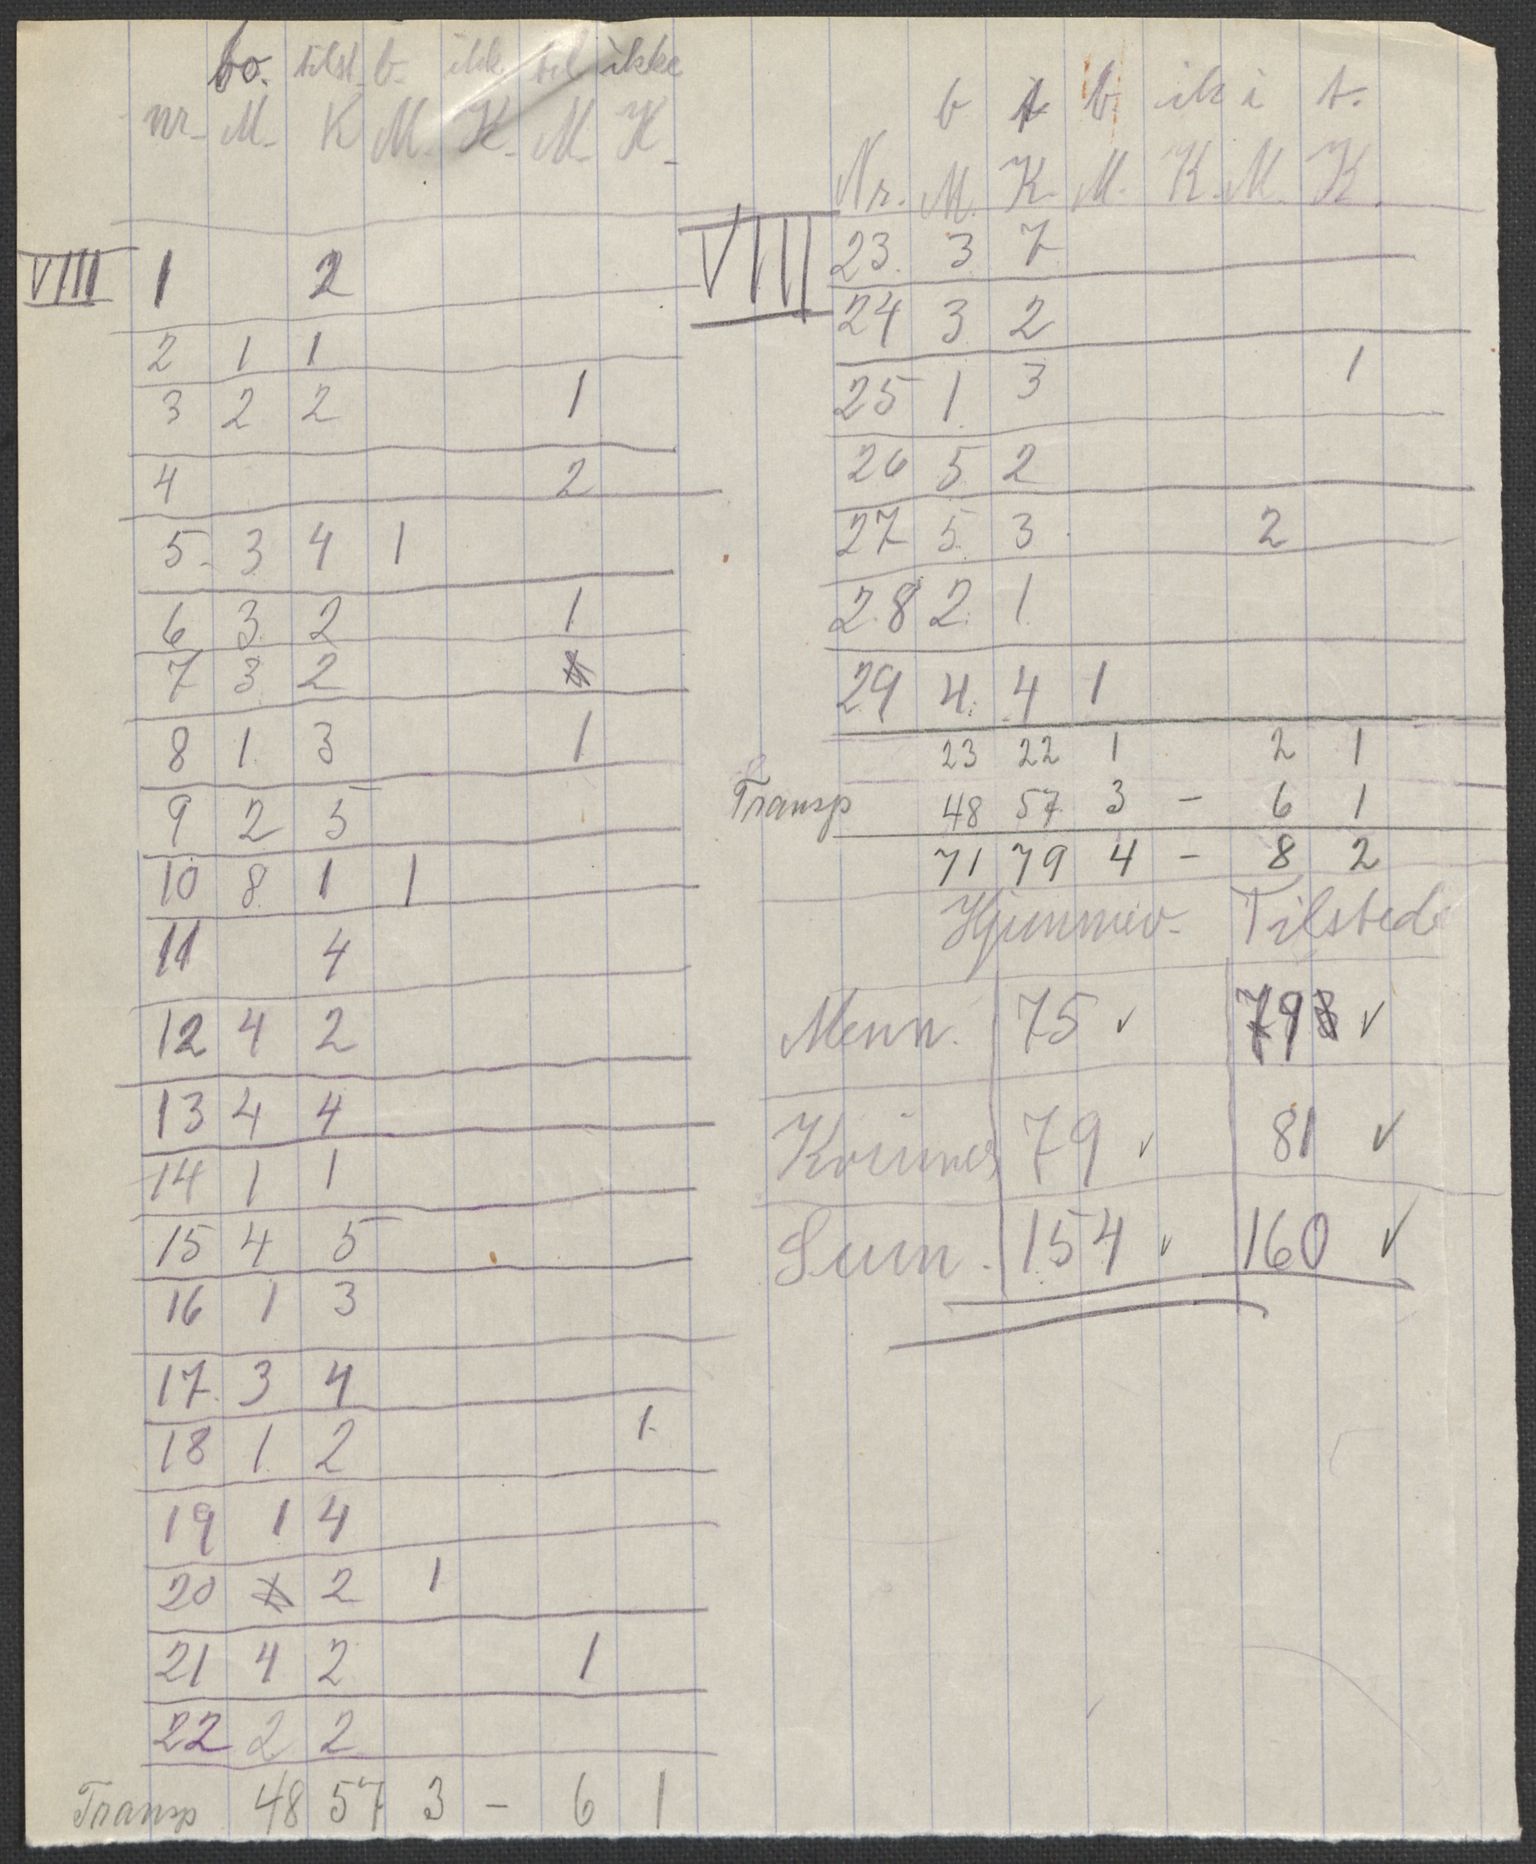 bo. tilst b. ikk til ikke
nr. M. K M. K. M. K.
VIII 1 2
2 1 1
3 2 2 1
4 2
5. 3 4 1
6 3 2 1
7 3 2
8 1 3 1
9 2 5
10 8 1 1
11 4
12 4 2
13 4 4
14 1 1
15 4 5
16 1 3
17. 3 4
18 1 2 1
19 1 4
20 2 1
21 4 2 1
22 2 2
Transp 48 57 3 - 6 1
b t b ik i t.
Nr. M. K. M. K. M. K.
VIII 23. 3. 7
24 3 2
25 1. 3 1
26 5 2
27 5. 3. 2
28 2. 1.
29 4. 4 1
23 22 1 2 1
Transp 48 57 3 - 6 1
71 79 4 - 8 2
Hjemmev. Tilstede
Menn. 75 ✓ 79 ✓
Kvinner 79 ✓ 81 ✓
Sum. 154 ✓ 160 ✓